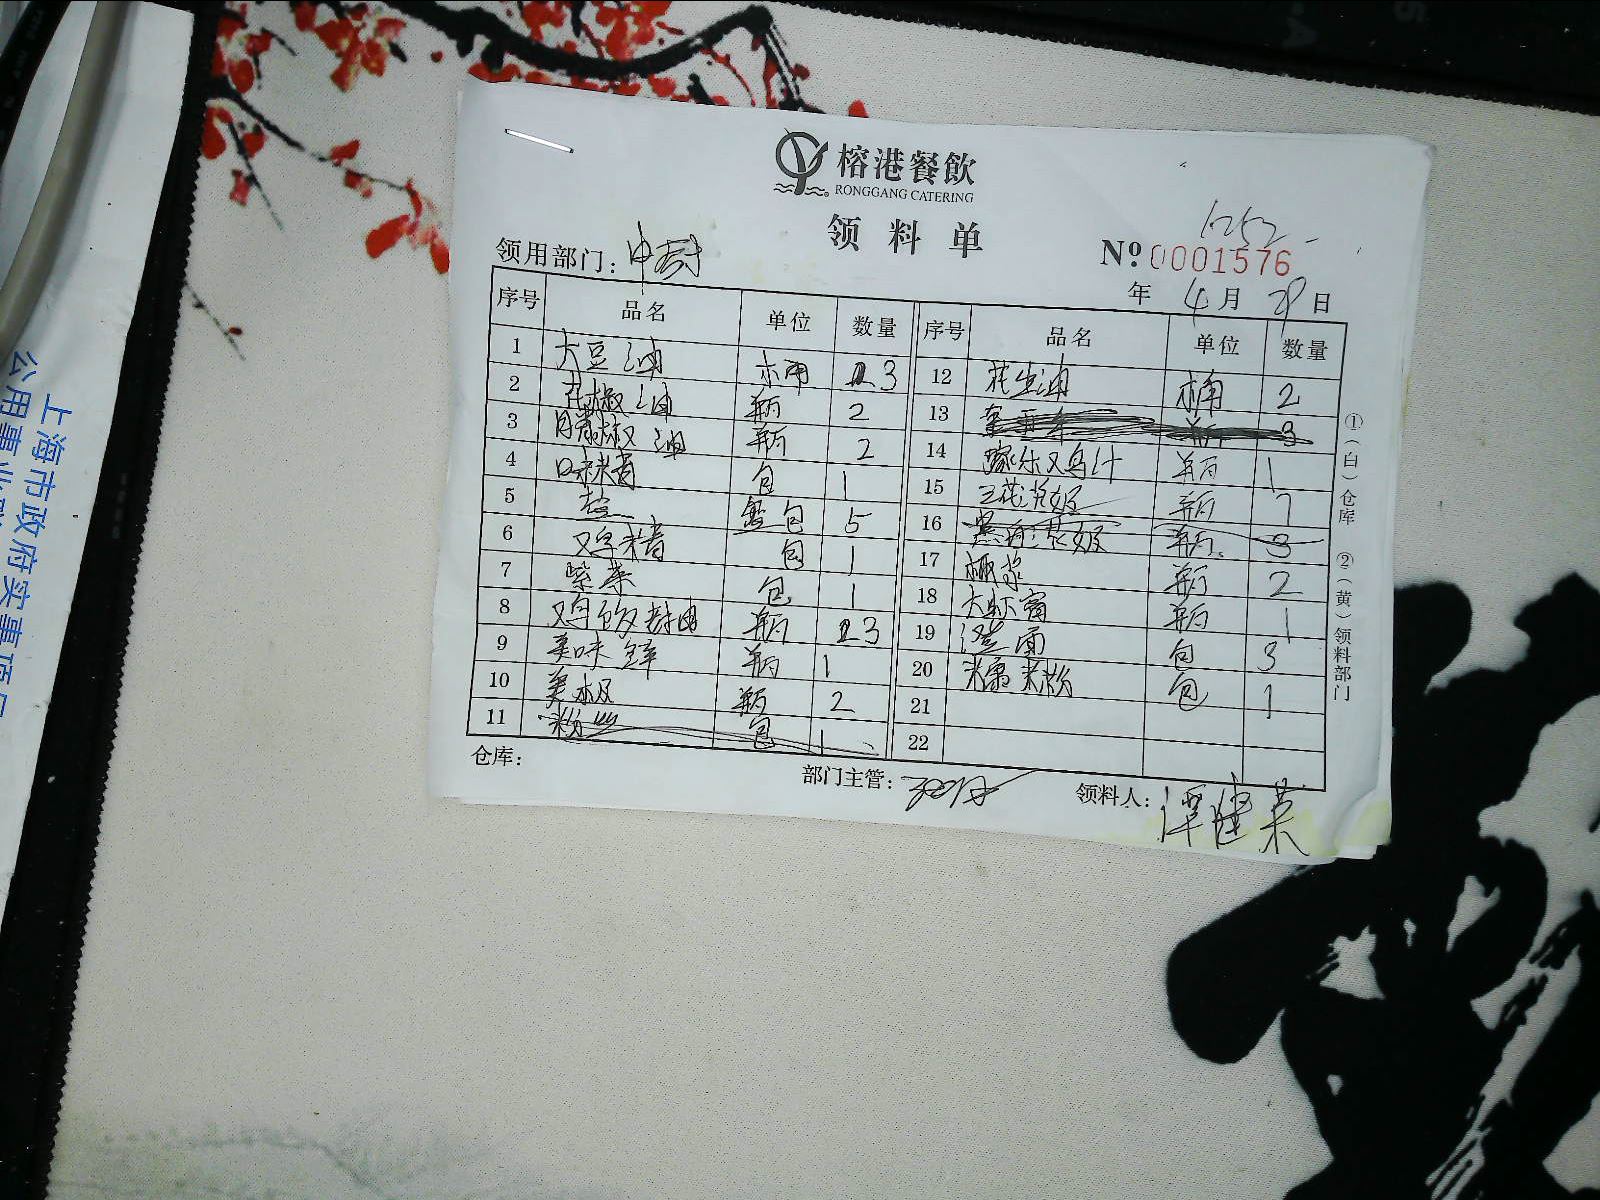 榕港餐飲
RONGGANG CATERING
领料单
1252-
№ 0001576
领用部门: 中厨
年 4 月 29 日
序号 品名 单位 数量
1 大豆油 桶 3
2 花椒油 瓶 2
3 油 瓶 2
4 味精 包 1
5 盐 包 5
6 鸡精 包 1
7 紫菜 包 1
8 鸡饭老抽 瓶 3
9 美味鲜 瓶 1
10 美极 瓶 2
11 粉丝 包 1
序号 品名 单位 数量
12 花生油 桶 2
13 瓶 3
14 鸡汁 瓶 1
15 三花淡奶 瓶 7
16 奶 瓶 3
17 瓶 2
18 瓶 1
19 澄面 包 3
20 糯米粉 包 1
21
22
①(白)仓库 ②(黄)领料部门
仓库:
部门主管:
领料人: 谭健荣
上海市政府实事项
公用事业